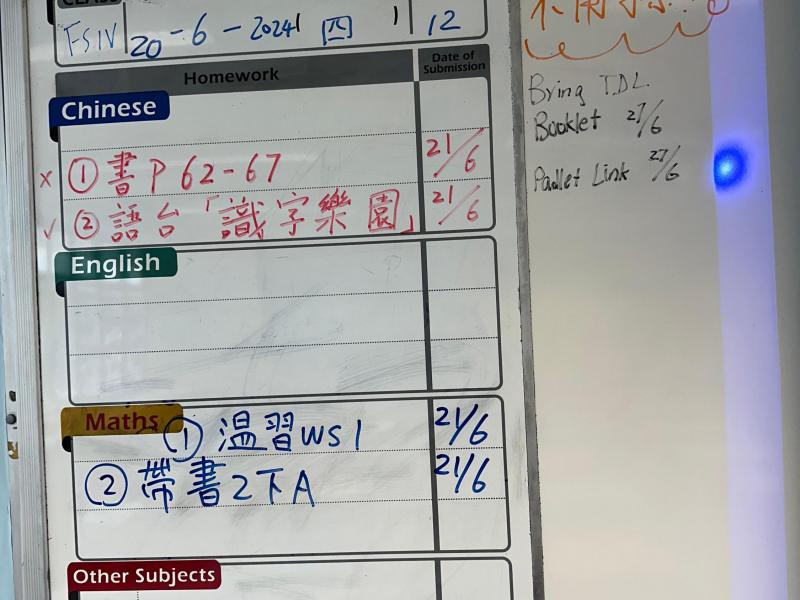 FSIV 20-6-2024 四 12
Homework Date of Submission
Chinese
x ① 書P 62-67 21/6
✓ ② 語台「識字樂園」 21/6
English
Maths
① 溫習WS1 21/6
② 帶書2下A 21/6
Other Subjects
Bring TDL
Booklet 27/6
Padlet Link 27/6